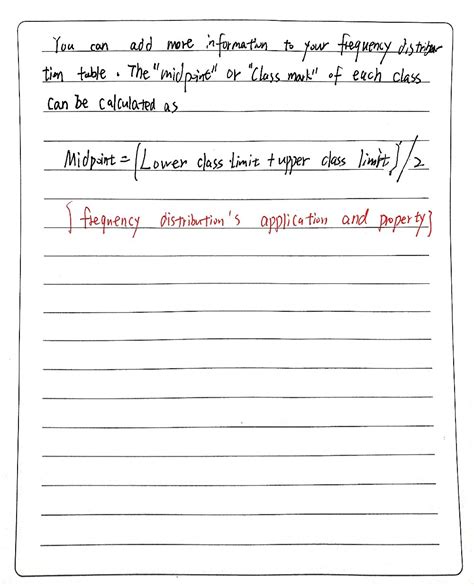 You can add more information to your frequency distribu-
tion table. The "midpoint" or "Class mark" of each class
can be calculated as
Midpoint = [Lower class limit + upper class limit]/2
{frequency distribution's application and property}